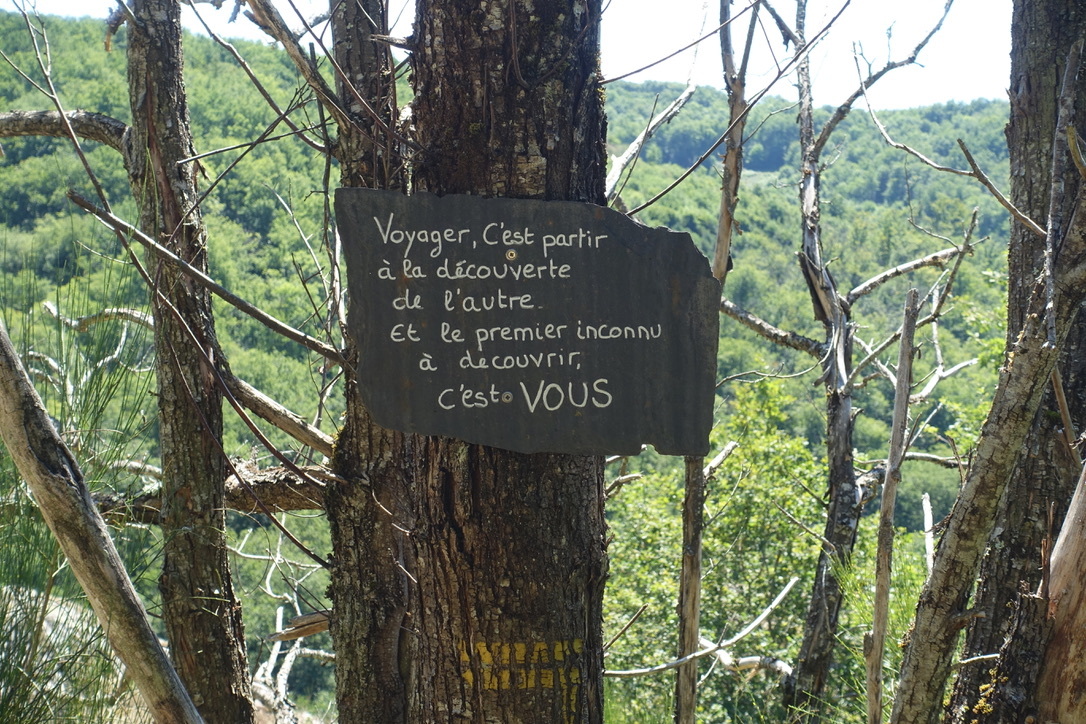 Voyager, C'est partir
à la découverte
de l'autre.
Et le premier inconnu
à decouvrir,
c'est VOUS